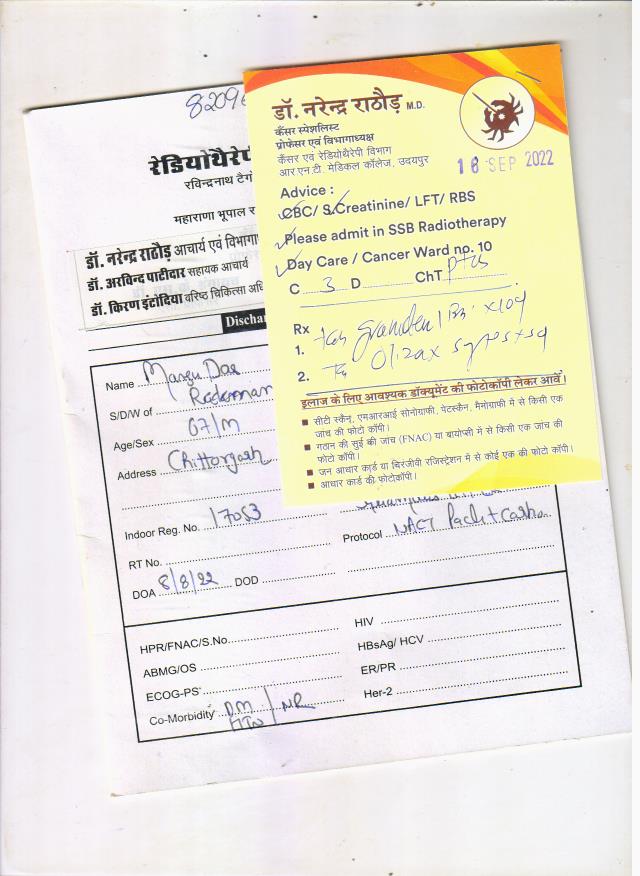 8209
रेडियोथैरेपी
रविन्द्रनाथ टैगो
महाराणा भूपाल र
डॉ. नरेन्द्र राठौड़ आचार्य एवं विभागा
डॉ. अरविन्द पाटीदार सहायक आचार्य
डॉ. किरण इंटोदिया वरिष्ठ चिकित्सा अधि
Dischar
Name Mangu Das
S/D/W of
Age/Sex 67/M
Address Chittorgarh
Indoor Reg. No. 17053
Protocol NACT
RT No.
DOA 8/8/22 DOD
HPR/FNAC/S.No.
HIV
ABMG/OS
HBsAg/ HCV
ECOG-PS
ER/PR
Co-Morbidity DM / NR
HTN
Her-2
डॉ. नरेन्द्र राठौड़ M.D.
कैंसर स्पेशलिस्ट
प्रोफेसर एवं विभागाध्यक्ष
कैंसर एवं रेडियोथैरेपी विभाग
आर.एन.टी. मेडिकल कॉलेज, उदयपुर
18 SEP 2022
Advice :
CBC/ S.Creatinine/ LFT/ RBS
Please admit in SSB Radiotherapy
Day Care / Cancer Ward no. 10
C 3 D ChT
Rx
1.
2.
इलाज के लिए आवश्यक डॉक्यूमेंट की फोटोकॉपी लेकर आवें।
सीटी स्कैन, एमआरआई सोनोग्राफी, पेटस्कैन, मैमोग्राफी में से किसी एक
जांच की फोटो कॉपी।
गठान की सुई की जांच (FNAC) या बायोप्सी में से किसी एक जांच की
फोटो कॉपी।
जन आधार कार्ड या चिरंजीवी रजिस्ट्रेशन में से कोई एक की फोटो कॉपी।
आधार कार्ड की फोटोकॉपी।